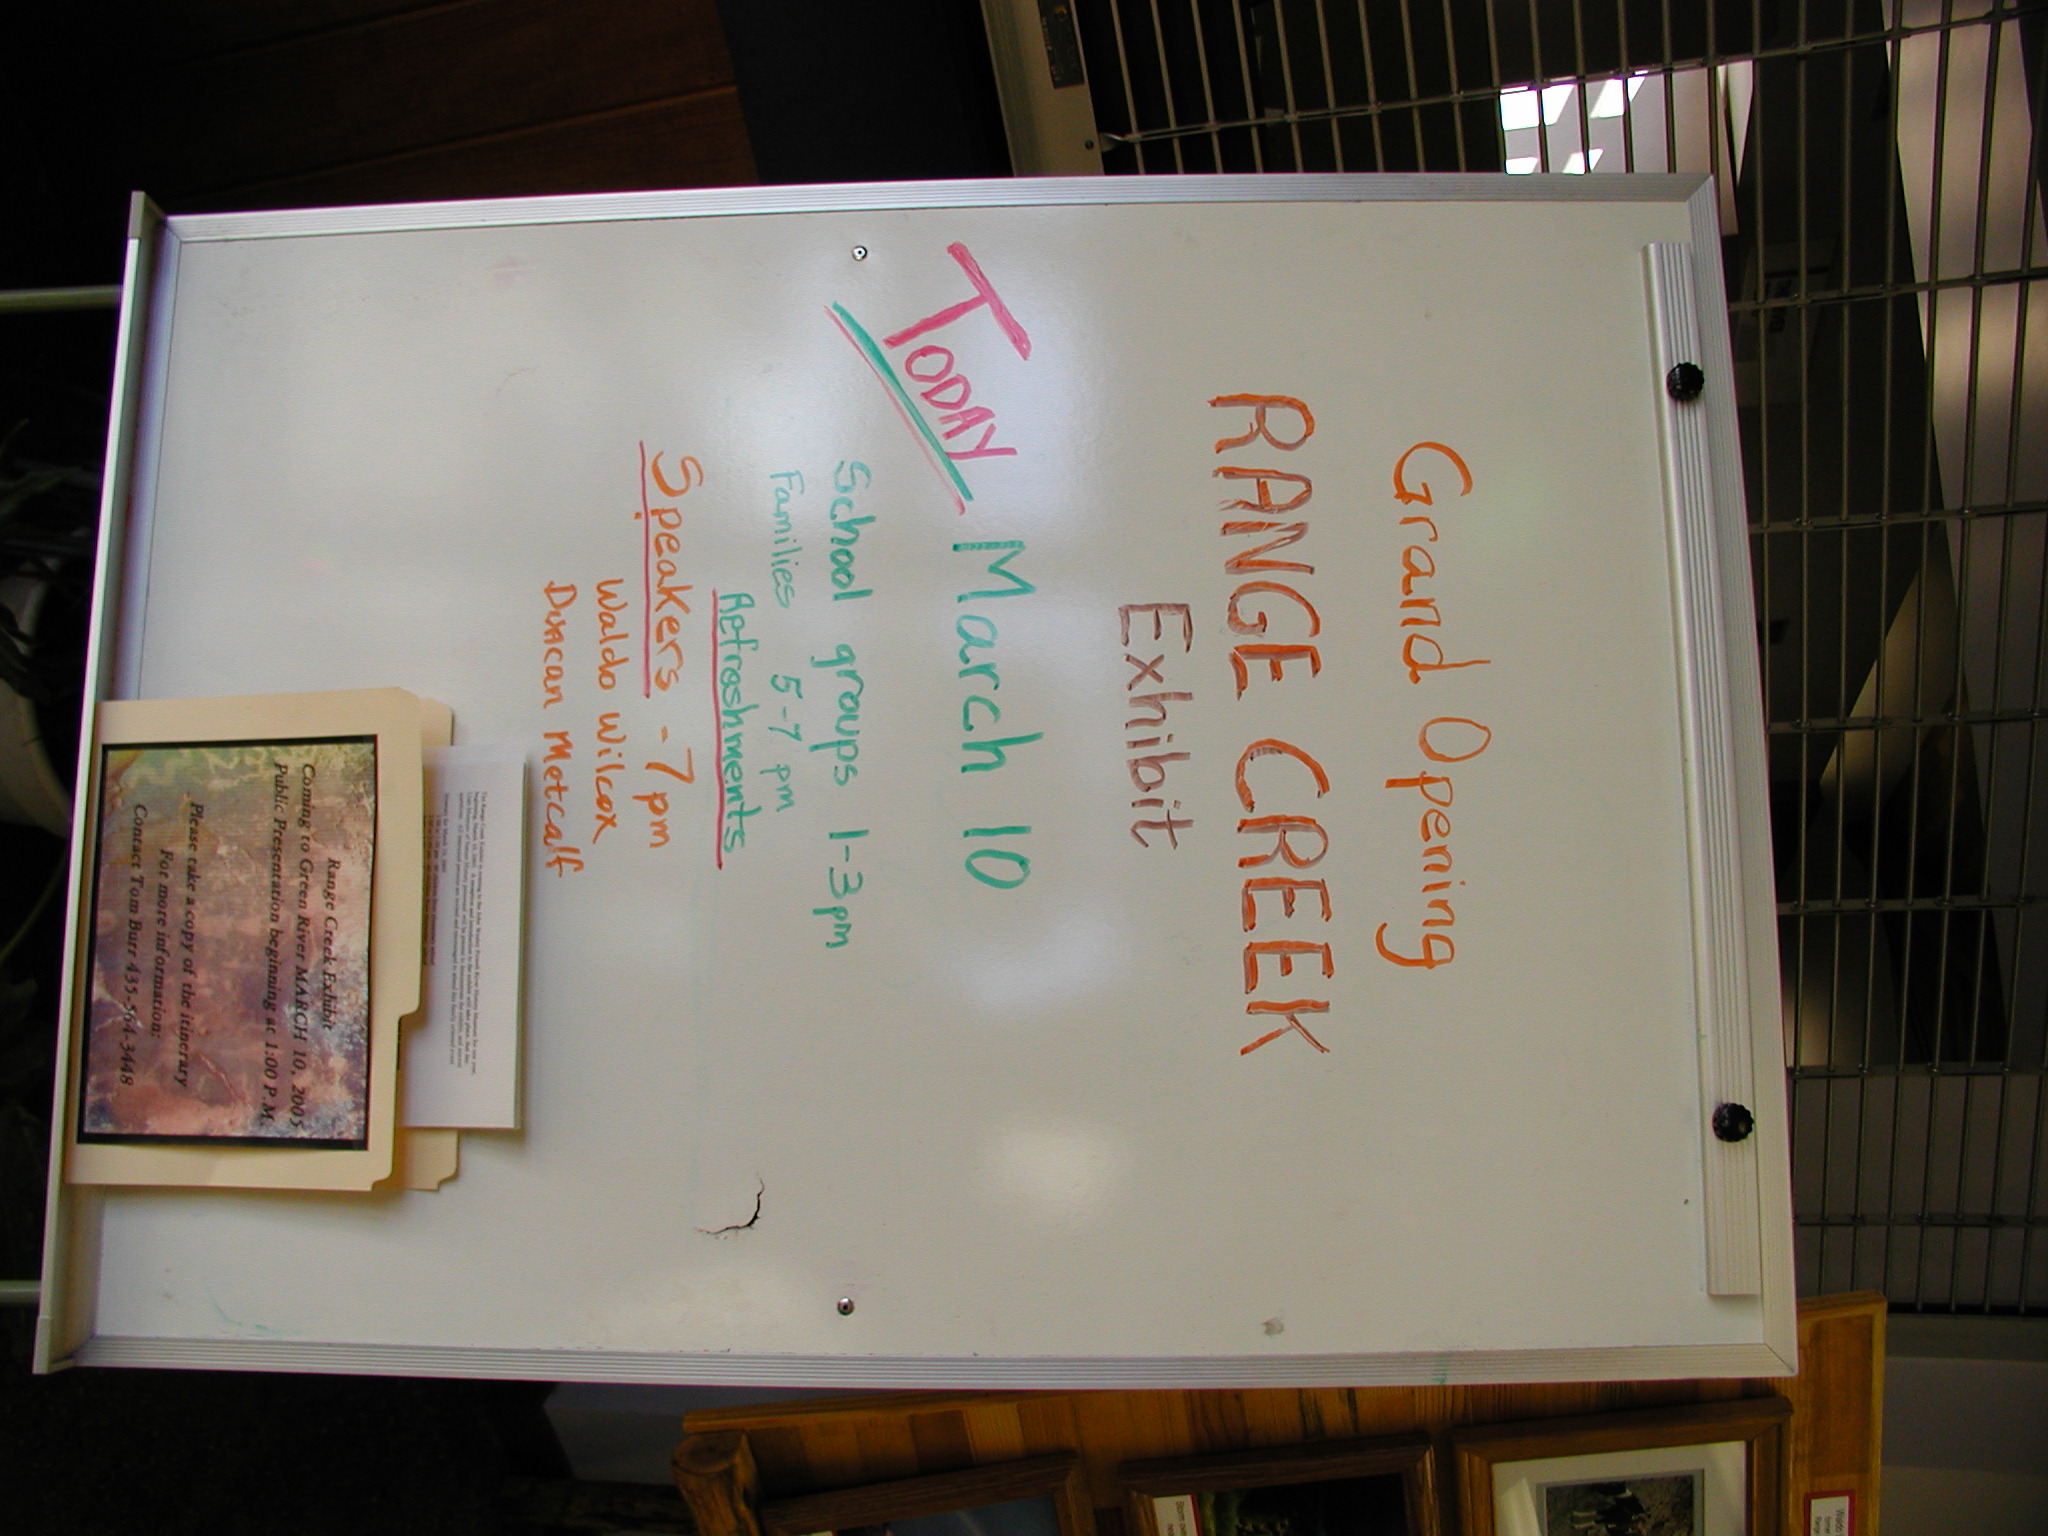 Grand Opening
RANGE CREEK
Exhibit
TODAY March 10
School groups 1-3pm
Families 5-7 pm
Refreshments
Speakers - 7pm
Waldo Wilcox
Duncan Metcalf
Range Creek Exhibit
Coming to Green River MARCH 10, 2005
Public Presentation beginning at 1:00 P.M.
Please take a copy of the itinerary
For more information:
Contact Tom Burr 435-564-3448